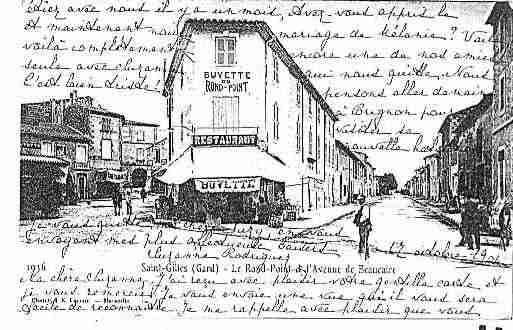 étiez avec nous il y a un mois, Avez vous appris le
et maintenant nous mariage de Mélanie ? Vous
voilà complètement encore une de nos amies
seule avec qui nous quitte, Nous
C'est bien triste pensons aller demain
à pour
visiter sa
nouvelle
BUVETTE
DU
ROND-POINT
RESTAURANT
BUVETTE
Je vous quitte en vous
envoyant mes plus affectueux
Suzanne Rodriguez
17 octobre 190
1936 Saint-Gilles (Gard) - Le Rond-Point et l'Avenue de Beaucaire
Ma chère Suzanne, J'ai reçu avec plaisir votre gentille carte et
je vous remercie, Je vous envoie une vue qu'il vous sera
facile de reconnaître, Je me rappelle avec plaisir que vous